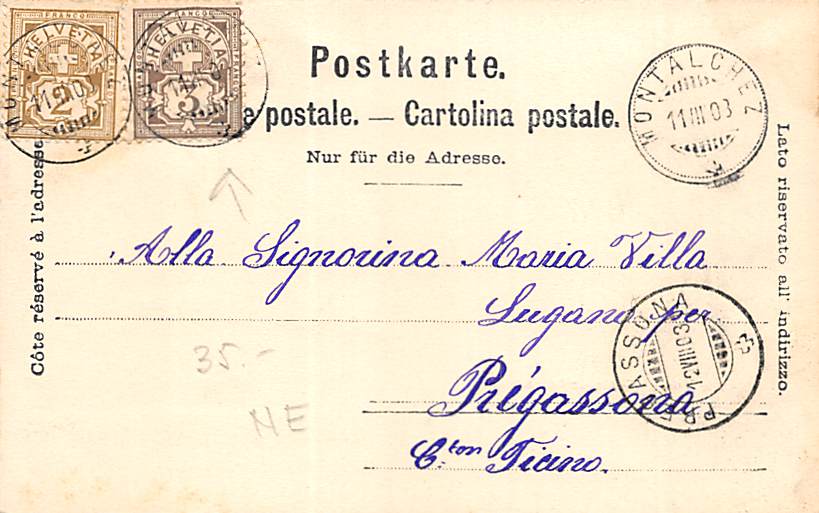 FRANCO FRANCO
HELVETIA HELVETIA
2 3
Postkarte.
e postale. — Cartolina postale.
Nur für die Adresse.
MONTALCHEZ
11 III 03
Côte réservé à l'adresse
Lato riservato all' indirizzo.
Alla Signorina Maria Villa
Lugano per
Prégassona
C:ton Ticino.
PREGASSONA
35.-
NE